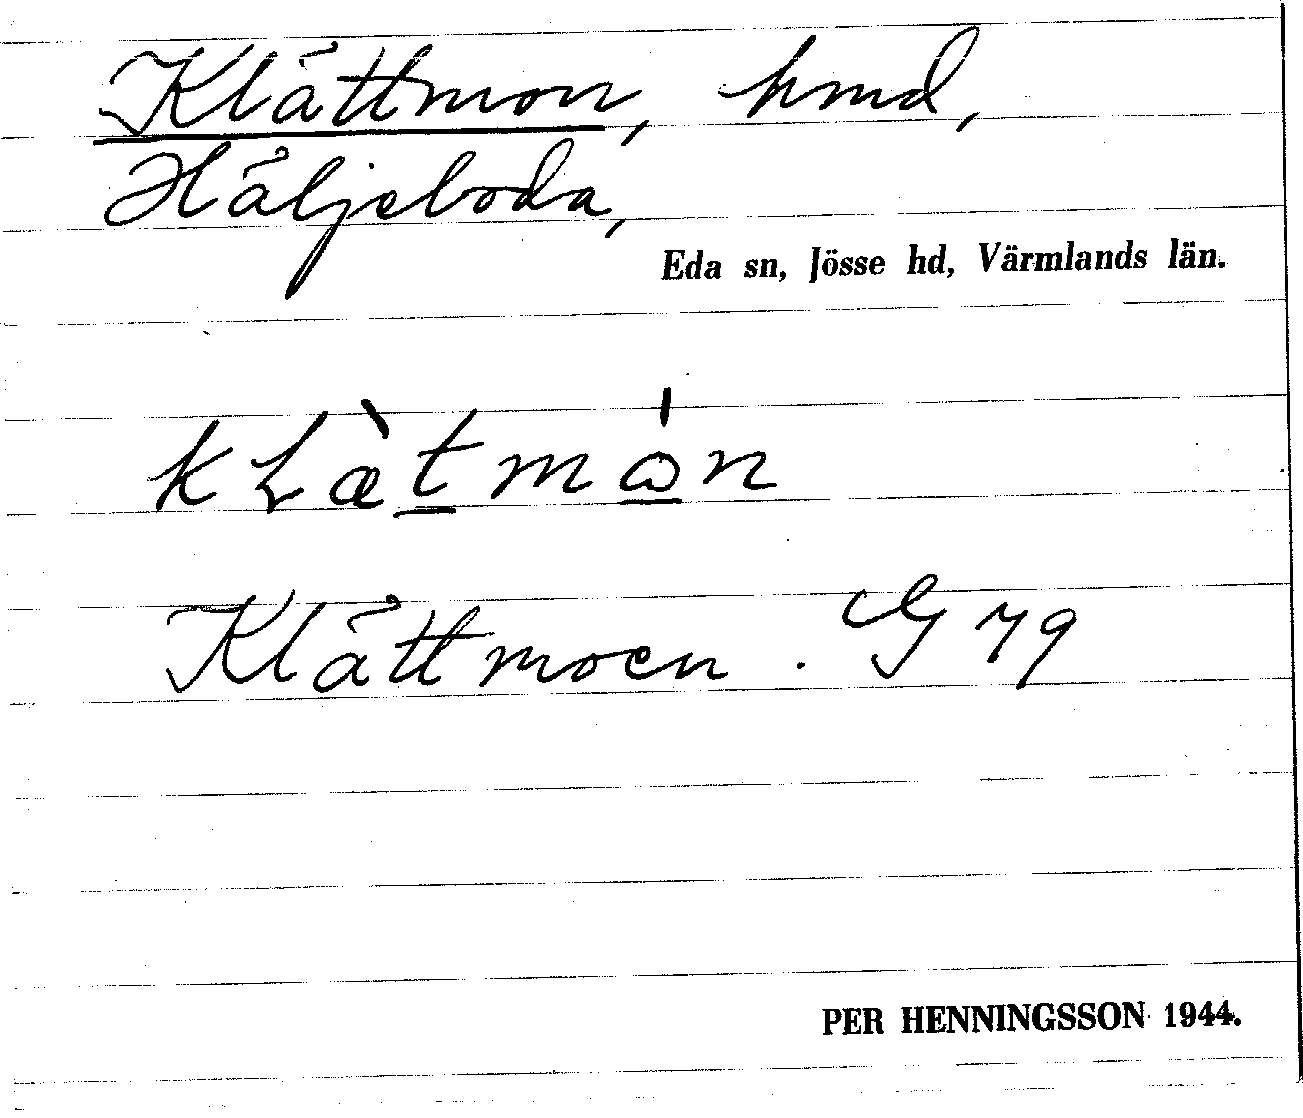 Klättmon, hmd,
Häljeboda,
Eda sn, Jösse hd, Värmlands län.
kLæ̀tmón
Klättmoen. G 79
PER HENNINGSSON 1944.